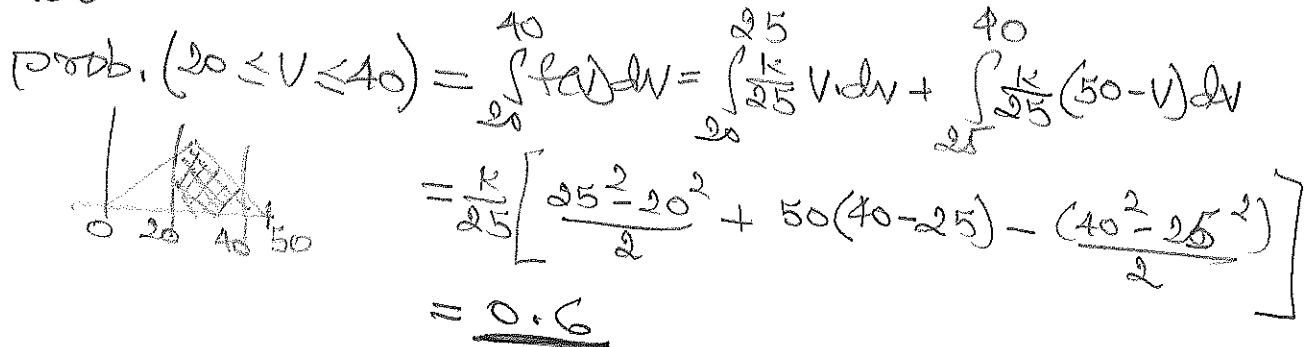 prob. (20 ≤ V ≤ 40) = ∫₂₀⁴⁰ f(v)dv = ∫₂₀²⁵ k/25 V.dv + ∫₂₅⁴⁰ k/25 (50-V)dv
0 20 40 50
= k/25 [ (25²-20²)/2 + 50(40-25) - (40²-25²)/2 ]
= 0.6